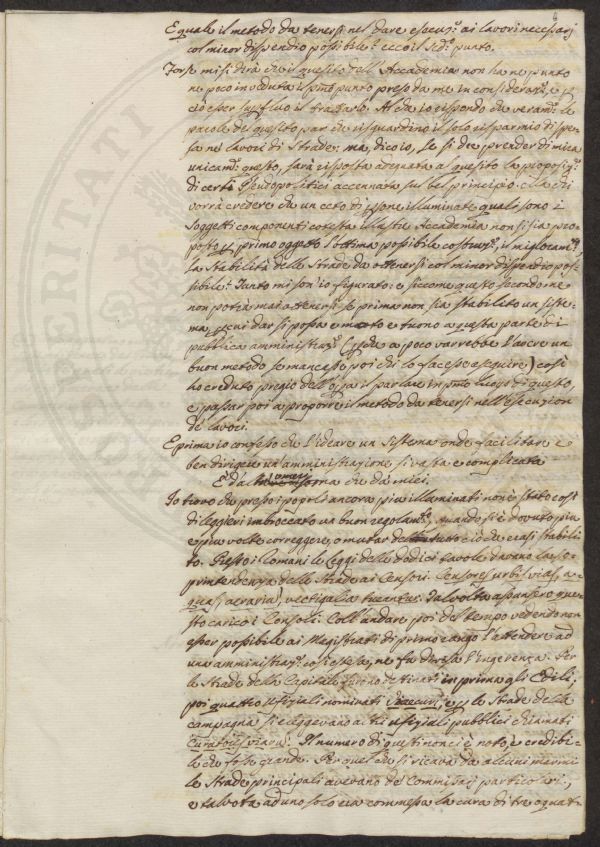 E quale il metodo da tenersi nel dare esecuz.e ai lavori necessarj
col minor dispendio possibile? ecco il 2do punto.
Forse mi si dirà che il quesito dell'Accademia non ha ne punto
ne poco in veduta il primo punto preso da me in consideraz.e, e p
ciò esser superfluo il trattarlo. Al che io rispondo che veram.e le
parole del quesito par che risguardino il solo risparmio di spe-
sa ne' lavori di Strade; ma, dico io, se si dee prender di mira
unicam.e questo, sarà risposta adequata al quesito la proposiz.e
di certi Pseudopolitici accennata sul bel principio. Ma chi
vorrà credere che un ceto di psone illuminate quali sono i
Soggetti componenti cotesta illustre Accademia non si sia pro-
posto p primo oggetto l'ottima possibile costruz.e, il miglioram.o,
la Stabilità delle Strade da ottenersi col minor dispendio pos-
sibile? Tanto mi son io figurato: e siccome questo secondo ne
non potrà mai ottenersi se prima non sia stabilito un siste-
ma, p cui dar si possa e moto e tuono a questa parte di
pubblica amministraz.e (p che a poco varrebbe l'avere un
buon metodo se mancasse poi chi lo facesse eseguire) così
ho creduto pregio dell'opa il parlare in pmo luogo di questo,
e passar poi a proporre il metodo da tenersi nell'esecuzion
de' lavori.
E prima io confesso che l'ideare un sistema onde facilitare e
ben dirigere un'amministrazione sì vasta e complicata
È d'altri omeri soma che da' miei.
Io trovo che presso i popoli ancora più illuminati non è stato così
di leggieri imbroccato un buon regolam.o, quando si è dovuto più
e più volte correggere, o mutar del tutto ciò che erasi stabili-
to. Presso i Romani le Leggi delle dodici tavole davano la so-
printendenza delle Strade ai Censori. Censores urbis vias, a-
quas, aerarium, vectigalia tueantur. Talvolta assunsero que-
sto carico i Consoli. Coll'andare poi del tempo vedendo non
esser possibile ai Magistrati di primo rango l'attendere ad
una amministraz.e così estesa, ne fu divisa l'ingerenza. Per
le Strade della Capitale furino destinati in prima gli Edili,
poi quattro Uffiziali nominati Viaecuri, e p le Strade della
campagna si eleggevano altri uffiziali pubblici chiamati
Curatores viarum. Il numero di questi non ci è noto, è credibi-
le che fosse grande. Per quel che si ricava da alcuni marmi
le Strade principali avevano de' Commissarj particolari,
e talvolta ad uno solo era commessa la cura di tre o quat-